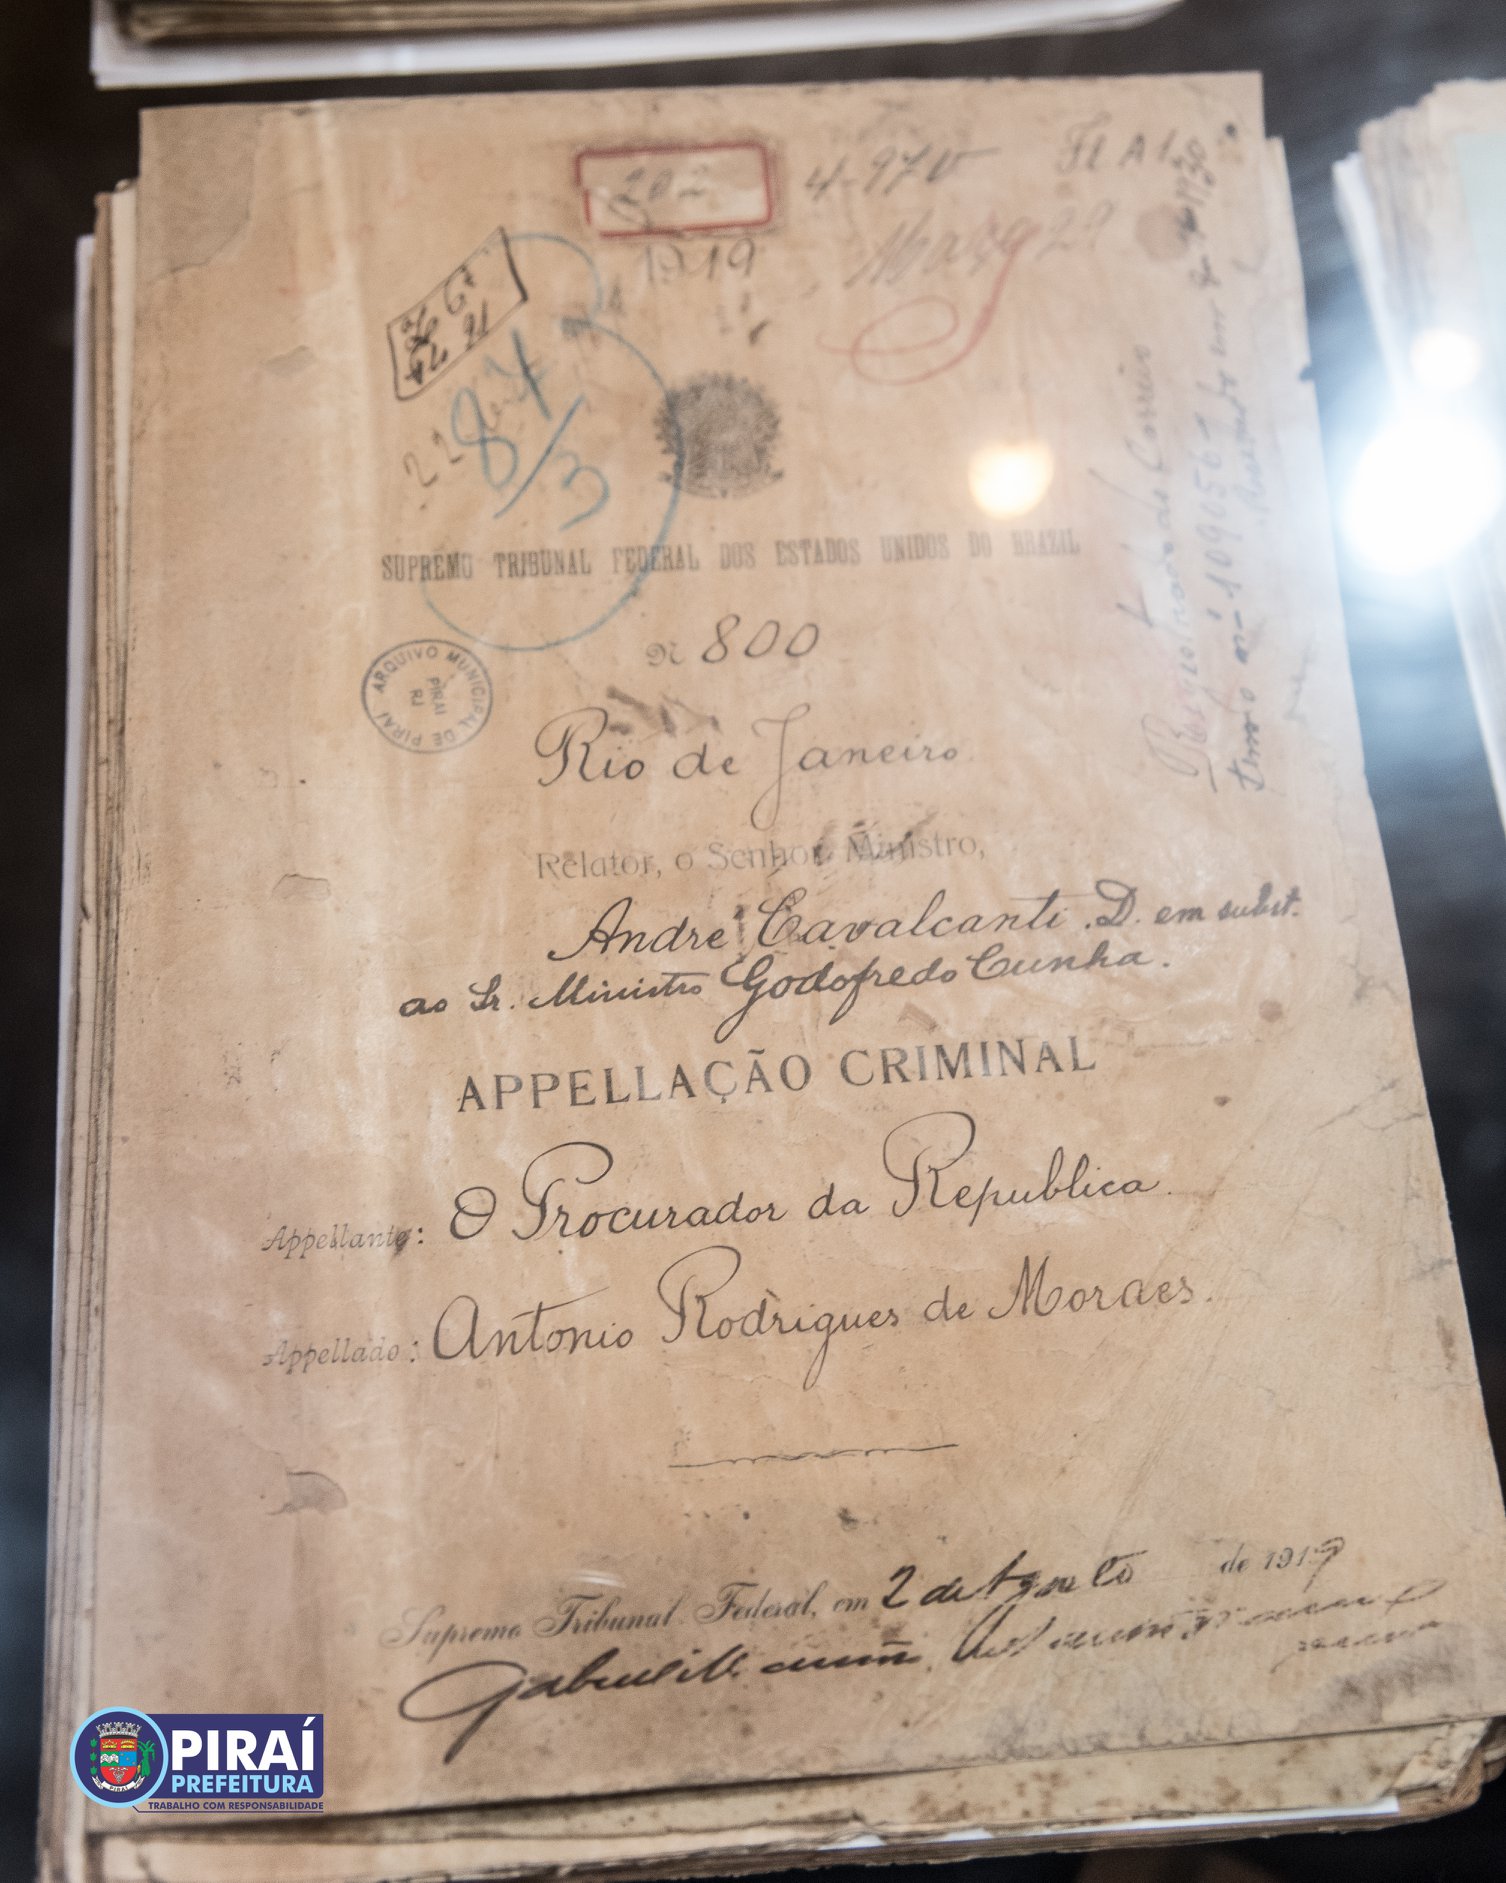 202
1919
4-970
84/3
SUPREMO TRIBUNAL FEDERAL DOS ESTADOS UNIDOS DO BRAZIL
Nº 800
ARQUIVO MUNICIPAL DE PIRAÍ
PIRAÍ
RJ
Rio de Janeiro.
Relator, o Senhor Ministro,
André Cavalcanti. D. em subst.
ao Sr. Ministro Godofredo Cunha.
APPELLAÇÃO CRIMINAL
Appellante: O Procurador da Republica.
Appellado: Antonio Rodrigues de Moraes.
Supremo Tribunal Federal, em 2 de Agosto de 1919
PIRAÍ
PIRAÍ
PREFEITURA
TRABALHO COM RESPONSABILIDADE